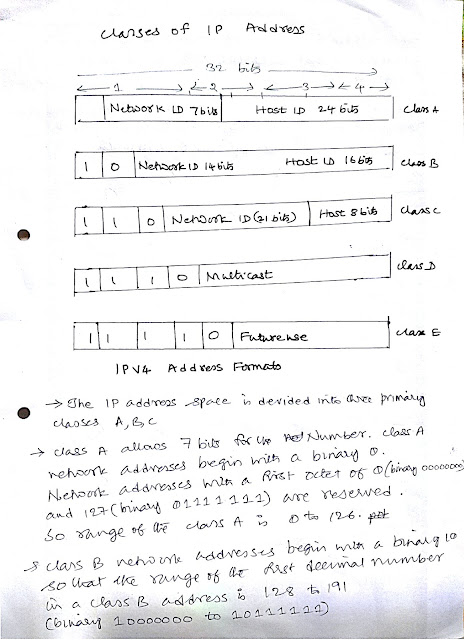 Classes of IP Address
32 bits
1 2 3 4
Network ID 7bits Host ID 24 bits Class A
1 0 Network ID 14bits Host ID 16 bits Class B
1 1 0 Network ID (21 bits) Host 8 bits Class C
1 1 1 0 Multicast Class D
1 1 1 1 0 Futureuse Class E
IPV4 Address Formats
→ The IP address space is devided into three primary
classes A, B, C
→ class A allows 7 bits for the Number. class A
network addresses begin with a binary 0.
Network addresses with a first octet of 0 (binary 0000000)
and 127 (binary 01111111) are reserved.
So range of the class A is 0 to 126.
class B network addresses begin with a binary 10
so that the range of the first decimal number
in a class B address is 128 to 191
(binary 10000000 to 10111111)